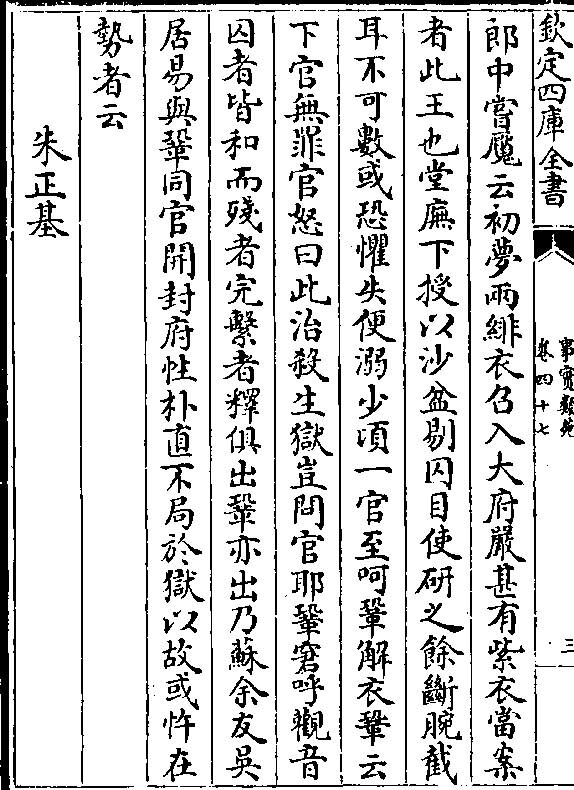 欽定四庫全書
事實類苑
卷四十七
三
郎中嘗魘云初夢兩緋衣召入大府嚴甚有紫衣當案
者此王也堂廡下授以沙盆剔囚目使研之餘斷腕截
耳不可數或恐懼失便溺少頃一官至呵鞏解衣鞏云
下官無罪官怒曰此治殺生獄豈問官耶鞏窘呼觀音
囚者皆和而殘者完繫者釋俱出鞏亦出乃蘇余友吳
居易與鞏同官開封府性朴直不局於獄以故或忤在
勢者云
朱正基